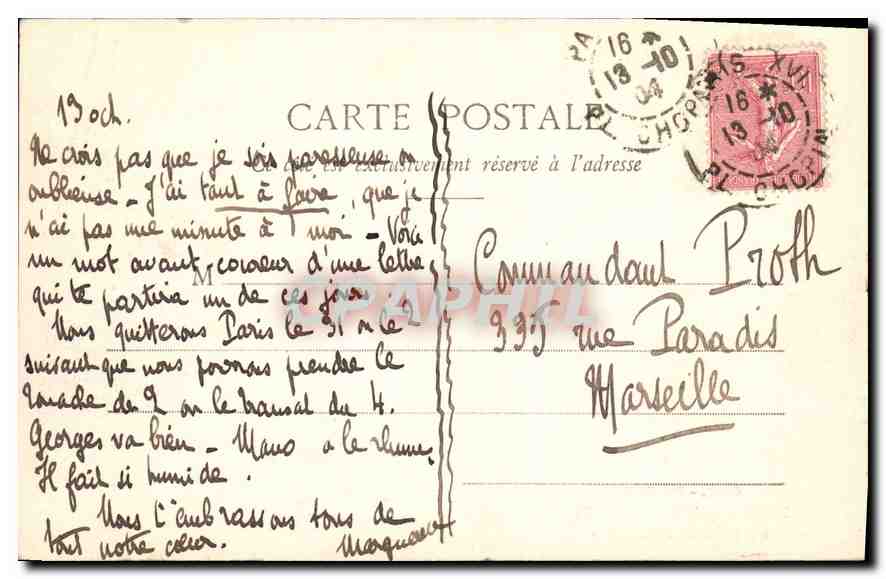 CARTE POSTALE
Ce côté est exclusivement réservé à l'adresse
PARIS XVI
16 *
13 -10
04
PL. CHOPIN
16 *
13 -10
04
PL. CHOPIN
13 oct.
Ne crois pas que je sois paresseuse ou
oublieuse - J'ai tant à faire, que je
n'ai pas une minute à moi - Voici
un mot avant coureur d'une lettre
qui te partira un de ces jours.
Nous quitterons Paris le 31 ou le 2
suivant que nous pourrons prendre le
Touache du 2 ou le transat du 4.
Georges va bien - Mano a le rhume,
Il fait si humide.
Nous t'embrassons tous de
tout notre cœur.
M
Commandant Proth
335 rue Paradis
Marseille
CPAPHIL